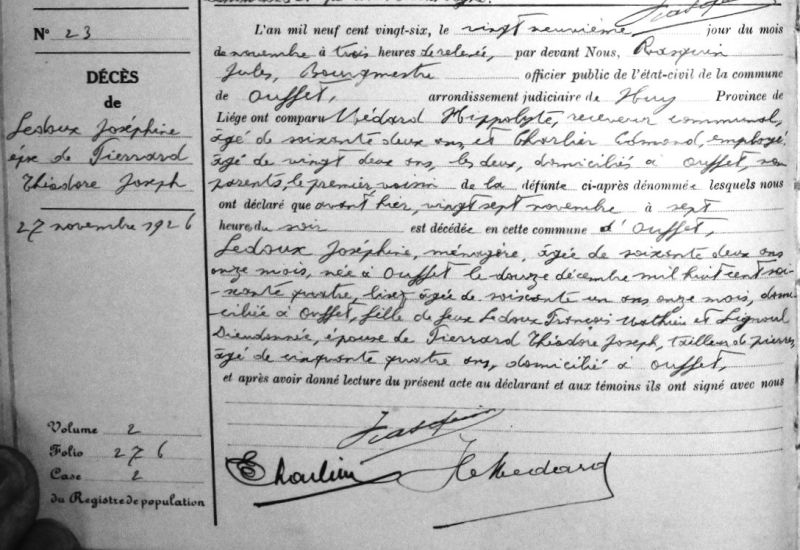 N° 23
DÉCÈS
de
Ledoux Joséphine
épse de Tierrard
Théodore Joseph
27 novembre 1926
Volume 2
Folio 276
Case 2
du Registre de population
L'an mil neuf cent vingt-six, le vingt neuvième jour du mois
de novembre à trois heures de relevée, par devant Nous, Rasquin
Jules, Bourgmestre officier public de l'état-civil de la commune
de Ouffet, arrondissement judiciaire de Huy Province de
Liége ont comparu Médard Hippolyte, receveur communal,
âgé de soixante deux ans, et Charlier Edmond, employé,
âgé de vingt deux ans, les deux, domiciliés à Ouffet, non
parents, le premier voisin de la défunte ci-après dénommée lesquels nous
ont déclaré que avant hier, vingt sept novembre à sept
heures du soir est décédée en cette commune d'Ouffet,
Ledoux Joséphine, ménagère, âgée de soixante deux ans
onze mois, née à Ouffet le douze décembre mil huit cent soi-
-xante quatre, lisez âgée de soixante un ans onze mois, domi-
-ciliée à Ouffet, fille de feux Ledoux François Mathieu et Lignoul
Dieudonnée, épouse de Tierrard Théodore Joseph, tailleur de pierres,
âgé de cinquante quatre ans, domicilié à Ouffet,
et après avoir donné lecture du présent acte au déclarant et aux témoins ils ont signé avec nous
Rasquin
E Charlier H Médard